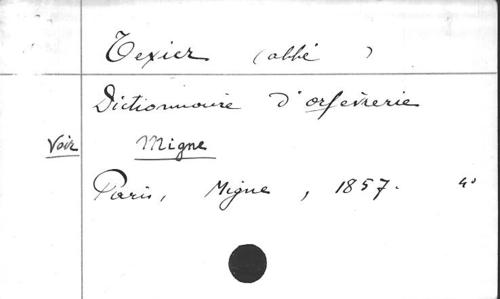 Texier (abbé )
Dictionnaire d'orfevrerie
Voir Migne
Paris, Migne, 1857. 4°